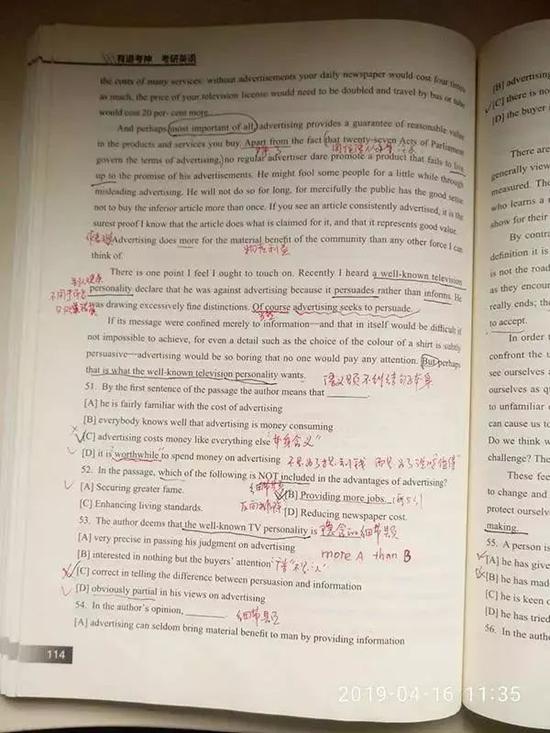 有道考神 考研英语
the costs of many services: without advertisements your daily newspaper would cost four times
as much, the price of your television license would need to be doubled and travel by bus or tube
would cost 20 per cent more.
And perhaps most important of all advertising provides a guarantee of reasonable value
in the products and services you buy. Apart from the fact that twenty-seven Acts of Parliament
govern the terms of advertising, no regular advertiser dare promote a product that fails to live
up to the promise of his advertisements. He might fool some people for a little while through
misleading advertising. He will not do so for long, for mercifully the public has the good sense
not to buy the inferior article more than once. If you see an article consistently advertised, it is the
surest proof I know that the article does what is claimed for it, and that it represents good value.
Advertising does more for the material benefit of the community than any other force I can
think of.
物质利益
There is one point I feel I ought to touch on. Recently I heard a well-known television
personality declare that he was against advertising because it persuades rather than informs. He
was drawing excessively fine distinctions. Of course advertising seeks to persuade.
If its message were confined merely to information—and that in itself would be difficult if
not impossible to achieve, for even a detail such as the choice of the colour of a shirt is subtly
persuasive—advertising would be so boring that no one would pay any attention. But perhaps
that is what the well-known television personality wants.
51. By the first sentence of the passage the author means that
[A] he is fairly familiar with the cost of advertising
[B] everybody knows well that advertising is money consuming
[C] advertising costs money like everything else
[D] it is worthwhile to spend money on advertising
52. In the passage, which of the following is NOT included in the advantages of advertising?
[A] Securing greater fame. [B] Providing more jobs.
[C] Enhancing living standards. [D] Reducing newspaper cost.
53. The author deems that the well-known TV personality is
[A] very precise in passing his judgment on advertising
more A than B
[B] interested in nothing but the buyers' attention
[C] correct in telling the difference between persuasion and information
[D] obviously partial in his views on advertising
54. In the author's opinion, 细节题
[A] advertising can seldom bring material benefit to man by providing information
114
[B] advertising
[C] there is no
[D] the buyer
There are
generally view
measured. The
who learns a
show for their
By contra
definition it is
is not the road
as they encour
really ends; the
to accept.
In order t
confront the u
see ourselves a
ourselves as q
to unfamiliar
can cause us to
Do we think w
challenge? The
These fee
to change and
protect ourselve
making.
55. A person is
[A] he has give
[B] he has mad
[C] he is keen o
[D] he has tried
56. In the autho
2019-04-16 11:35